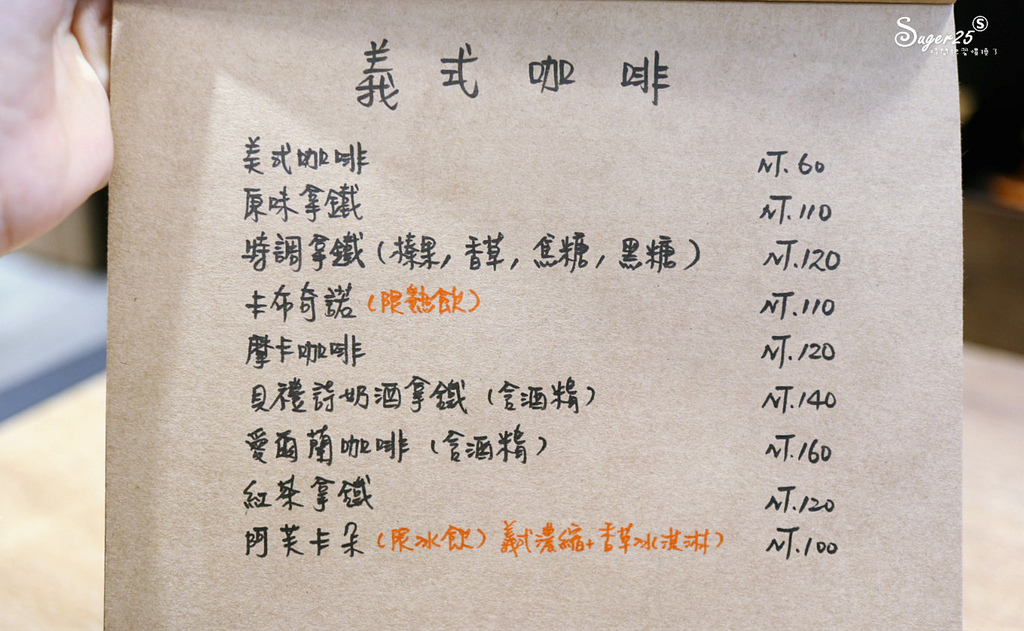 Suger25 S
時間他習慣擾了
義式咖啡
美式咖啡 NT.60
原味拿鐵 NT.110
特調拿鐵(榛果,香草,焦糖,黑糖) NT.120
卡布奇諾(限熱飲) NT.110
摩卡咖啡 NT.120
貝禮詩奶酒拿鐵(含酒精) NT.140
愛爾蘭咖啡(含酒精) NT.160
紅茶拿鐵 NT.120
阿芙卡朵(限冰飲)義式濃縮+香草冰淇淋) NT.100